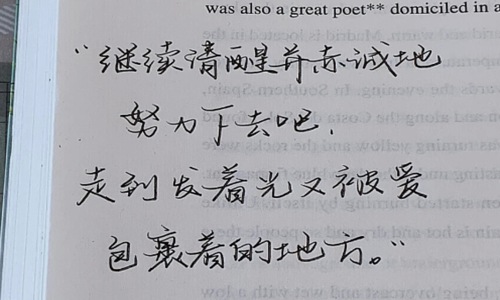 was also a great poet** domiciled in a
“继续清醒并赤诚地
努力下去吧，
走到发着光又被爱
包裹着的地方。”